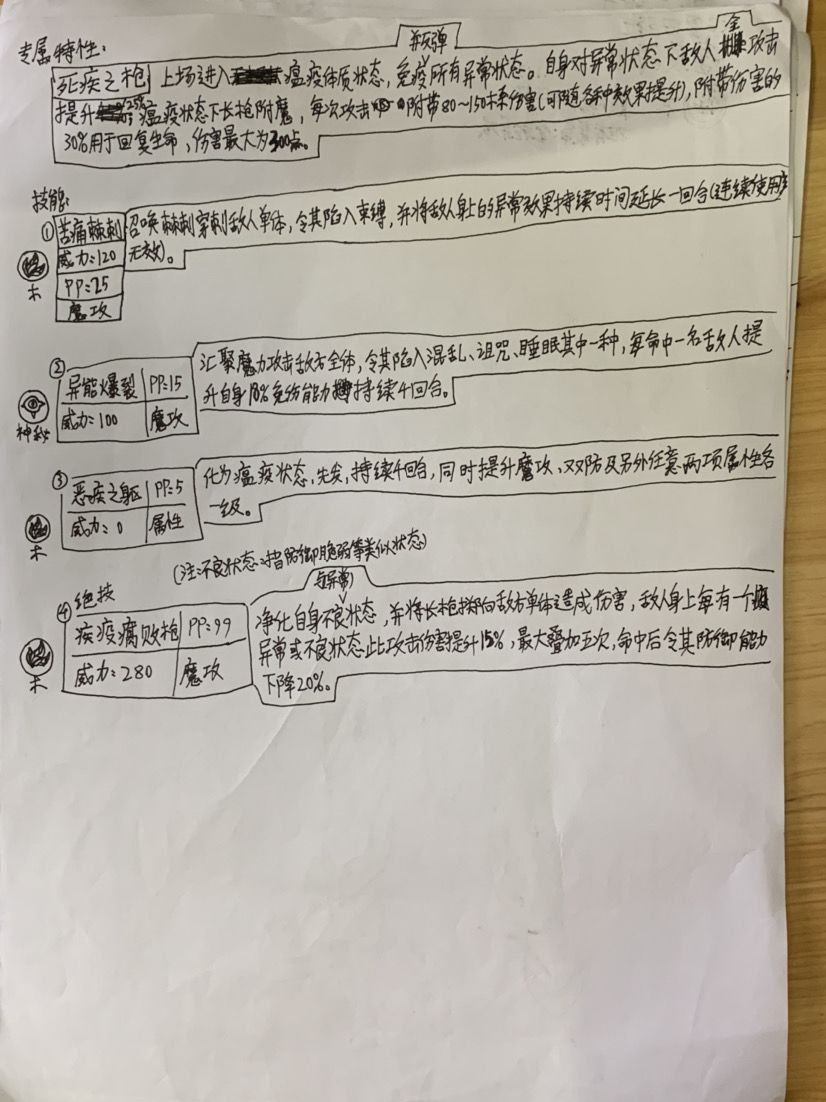 专属特性:
并反弹
全
死疾之枪 上场进入瘟疫体质状态，免疫所有异常状态。自身对异常状态下敌人攻击
提升25%瘟疫状态下长枪附魔，每次攻击附带80~150木系伤害(可随各种效果提升)，附带伤害的
30%用于回复生命，伤害最大为300点。
技能:
① 苦痛棘刺 召唤棘刺穿刺敌人单体，令其陷入束缚，并将敌人身上的异常效果持续时间延长一回合(连续使用
威力=120 无效)。
PP=25
木
魔攻
② 汇聚魔力攻击敌方全体，令其陷入混乱、诅咒、睡眠其中一种，每命中一名敌人提
异能爆裂 PP=15 升自身10%免伤能力持续4回合。
威力=100 魔攻
神秘
③ 化为瘟疫状态，先发，持续4回合，同时提升魔攻、双防及另外任意两项属性各
恶疾之躯 PP=5 一级。
威力=0 属性
木
(注:不良状态:指防御脆弱等类似状态)
④ 绝技
与异常
疾疫腐败枪 PP=99 净化自身不良状态，并将长枪掷向敌方单体造成伤害，敌人身上每有一个
威力=280 魔攻 异常或不良状态此攻击伤害提升15%，最大叠加五次，命中后令其防御能力
木 下降20%。